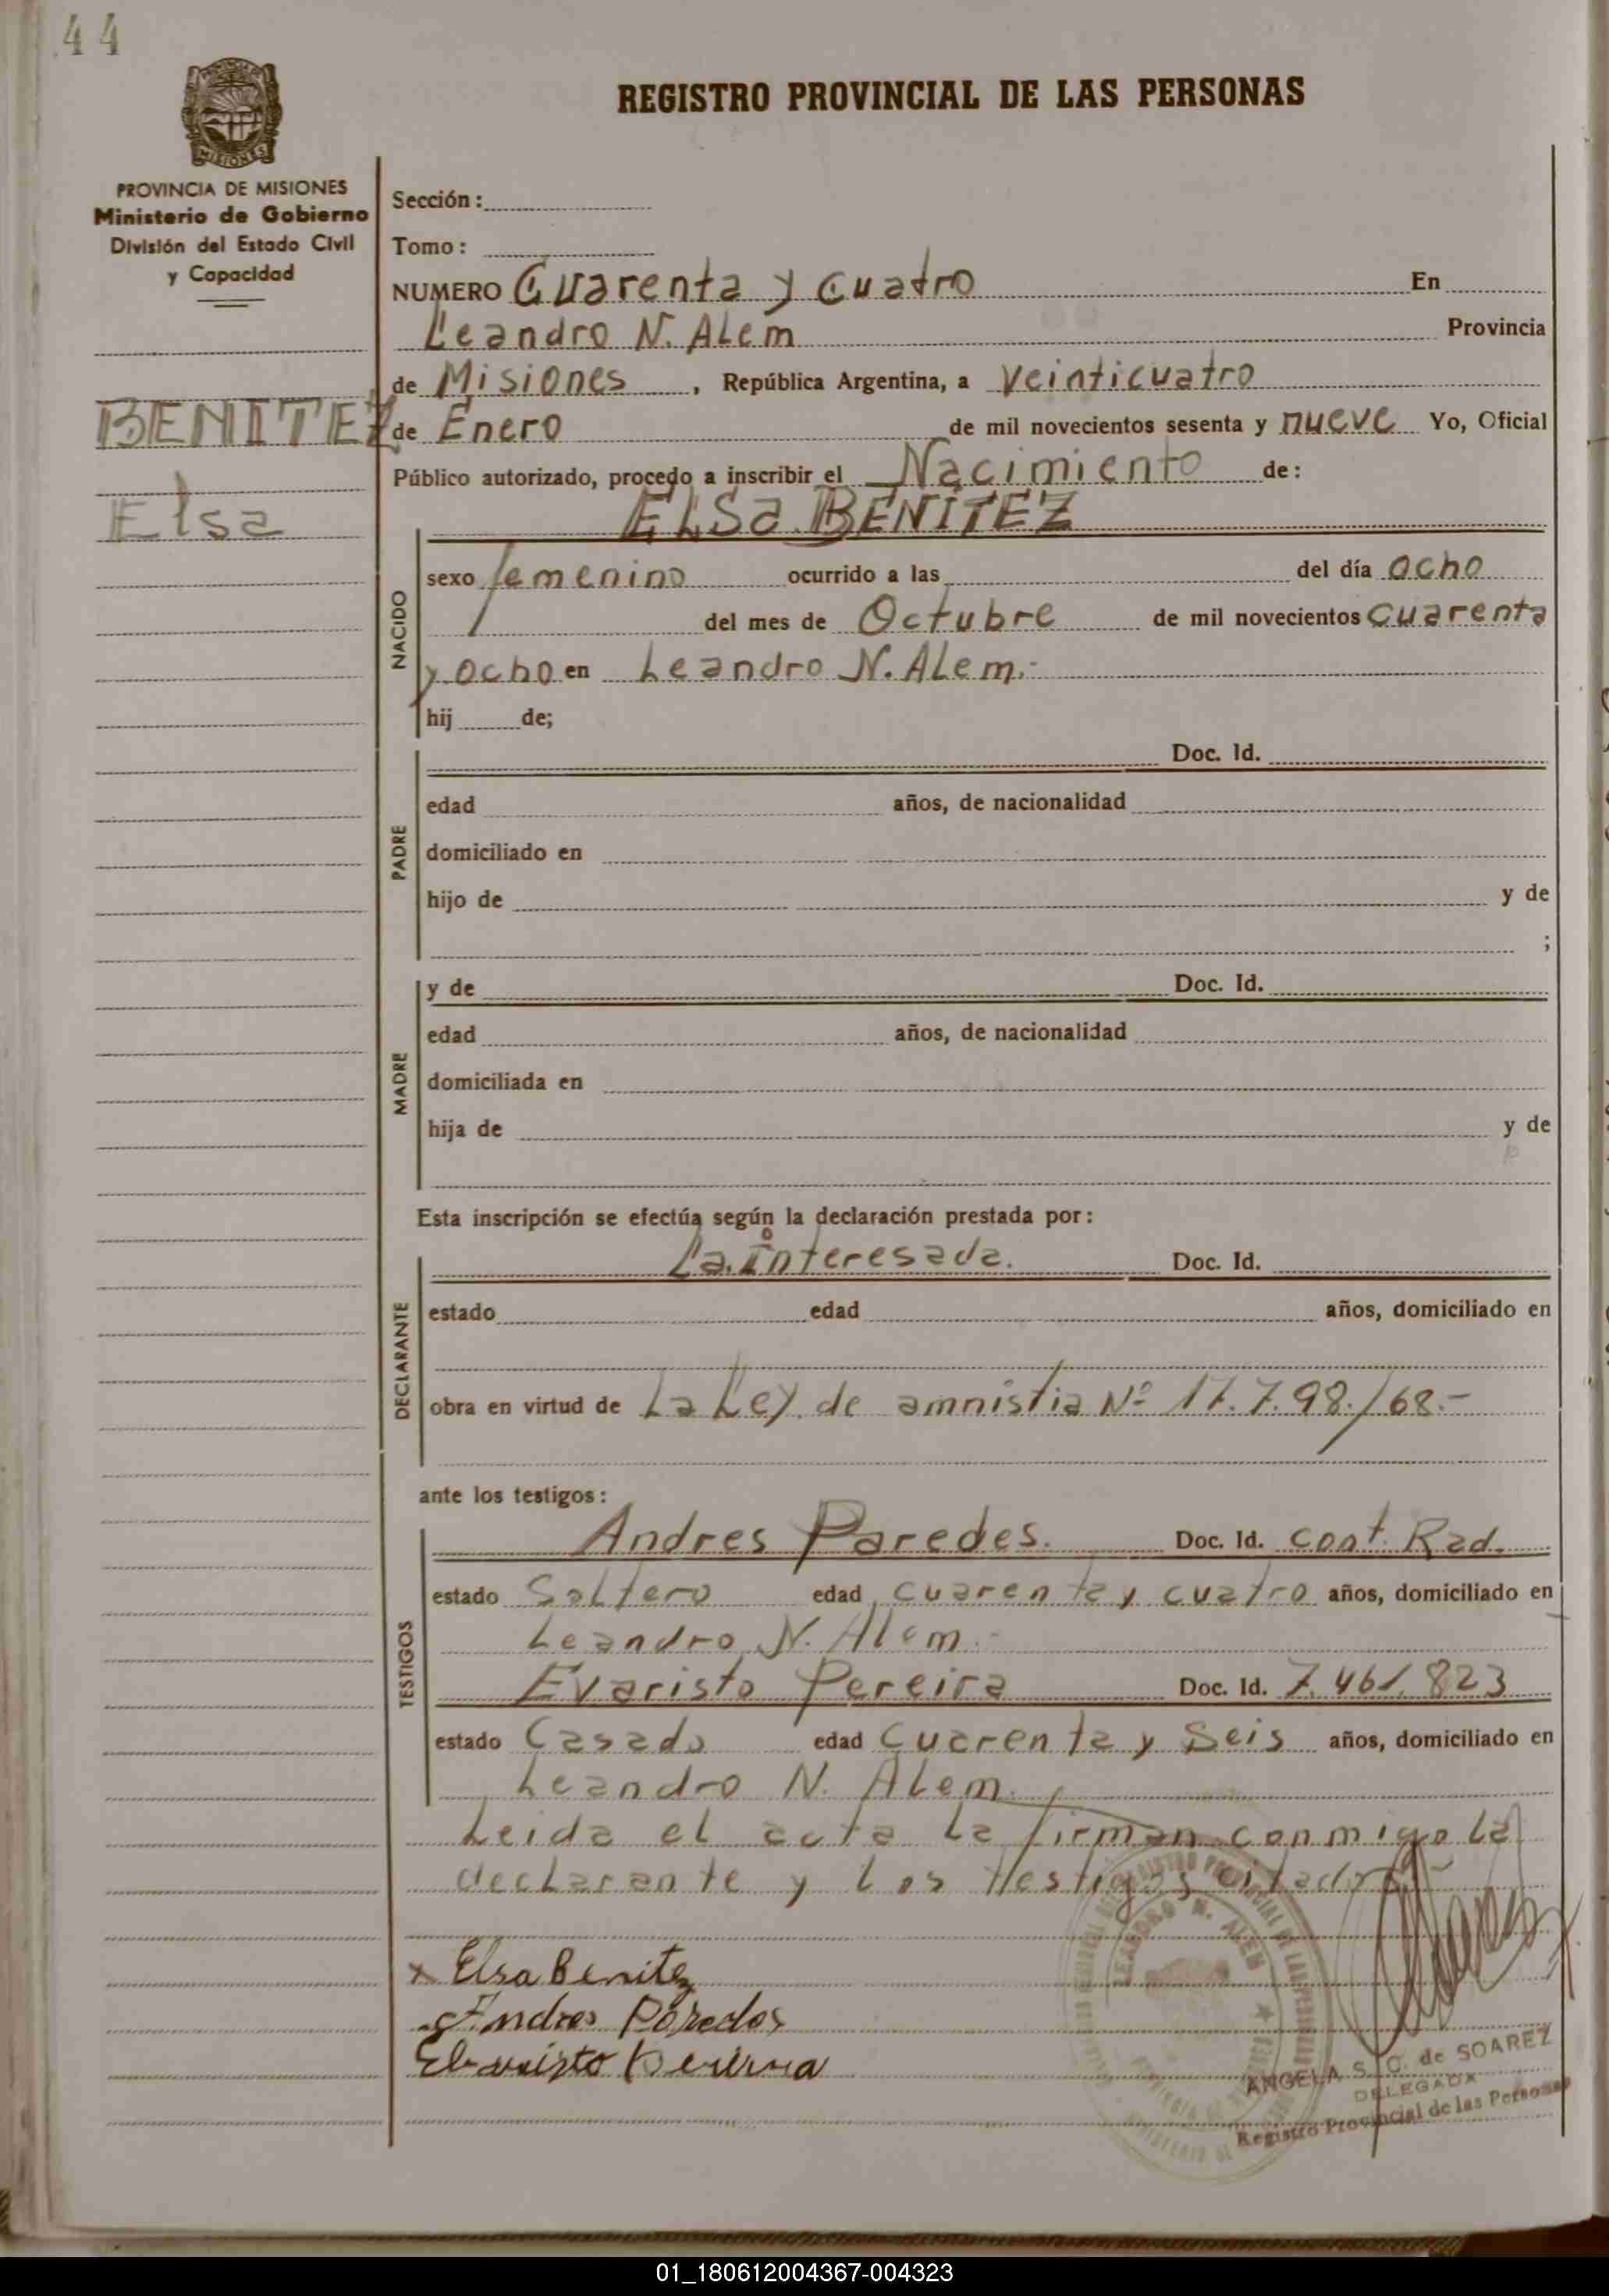 44
REGISTRO PROVINCIAL DE LAS PERSONAS
MISIONES
PROVINCIA DE MISIONES
Ministerio de Gobierno
División del Estado Civil
y Capacidad
BENITEZ
Elsa
Sección:
Tomo:
NUMERO Cuarenta y cuatro En
Leandro N. Alem Provincia
de Misiones, República Argentina, a veinticuatro
de Enero de mil novecientos sesenta y nueve Yo, Oficial
Público autorizado, procedo a inscribir el Nacimiento de:
ELSA BENITEZ
NACIDO
sexo femenino ocurrido a las del día ocho
del mes de Octubre de mil novecientos cuarenta
y ocho en Leandro N. Alem.-
hij de;
PADRE
Doc. Id.
edad años, de nacionalidad
domiciliado en
hijo de y de
;
MADRE
y de Doc. Id.
edad años, de nacionalidad
domiciliada en
hija de y de
Esta inscripción se efectúa según la declaración prestada por:
DECLARANTE
La Interesada. Doc. Id.
estado edad años, domiciliado en
obra en virtud de La Ley de amnistia Nº 17.7.98./68.-
ante los testigos:
TESTIGOS
Andres Paredes. Doc. Id. cont. Rad.
estado Soltero edad cuarenta y cuatro años, domiciliado en
Leandro N. Alem.-
Evaristo Pereira Doc. Id. 7.461.823
estado Casado edad Cuarenta y Seis años, domiciliado en
Leandro N. Alem.
Leida el acta la firman conmigo la
declarante y los testigos citados.-
x Elsa Benitez
Andres Paredes
LEANDRO N. ALEM
ANGELA S. C. de SOAREZ
DELEGADA
Registro Provincial de las Personas
01_180612004367-004323